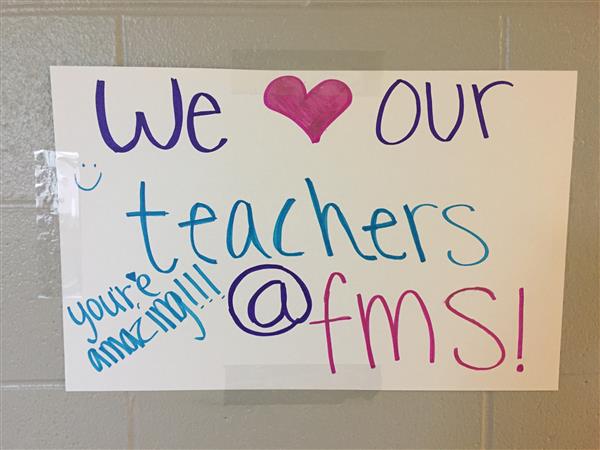 We ❤ our
teachers
@fms!
you're
amazing!!!